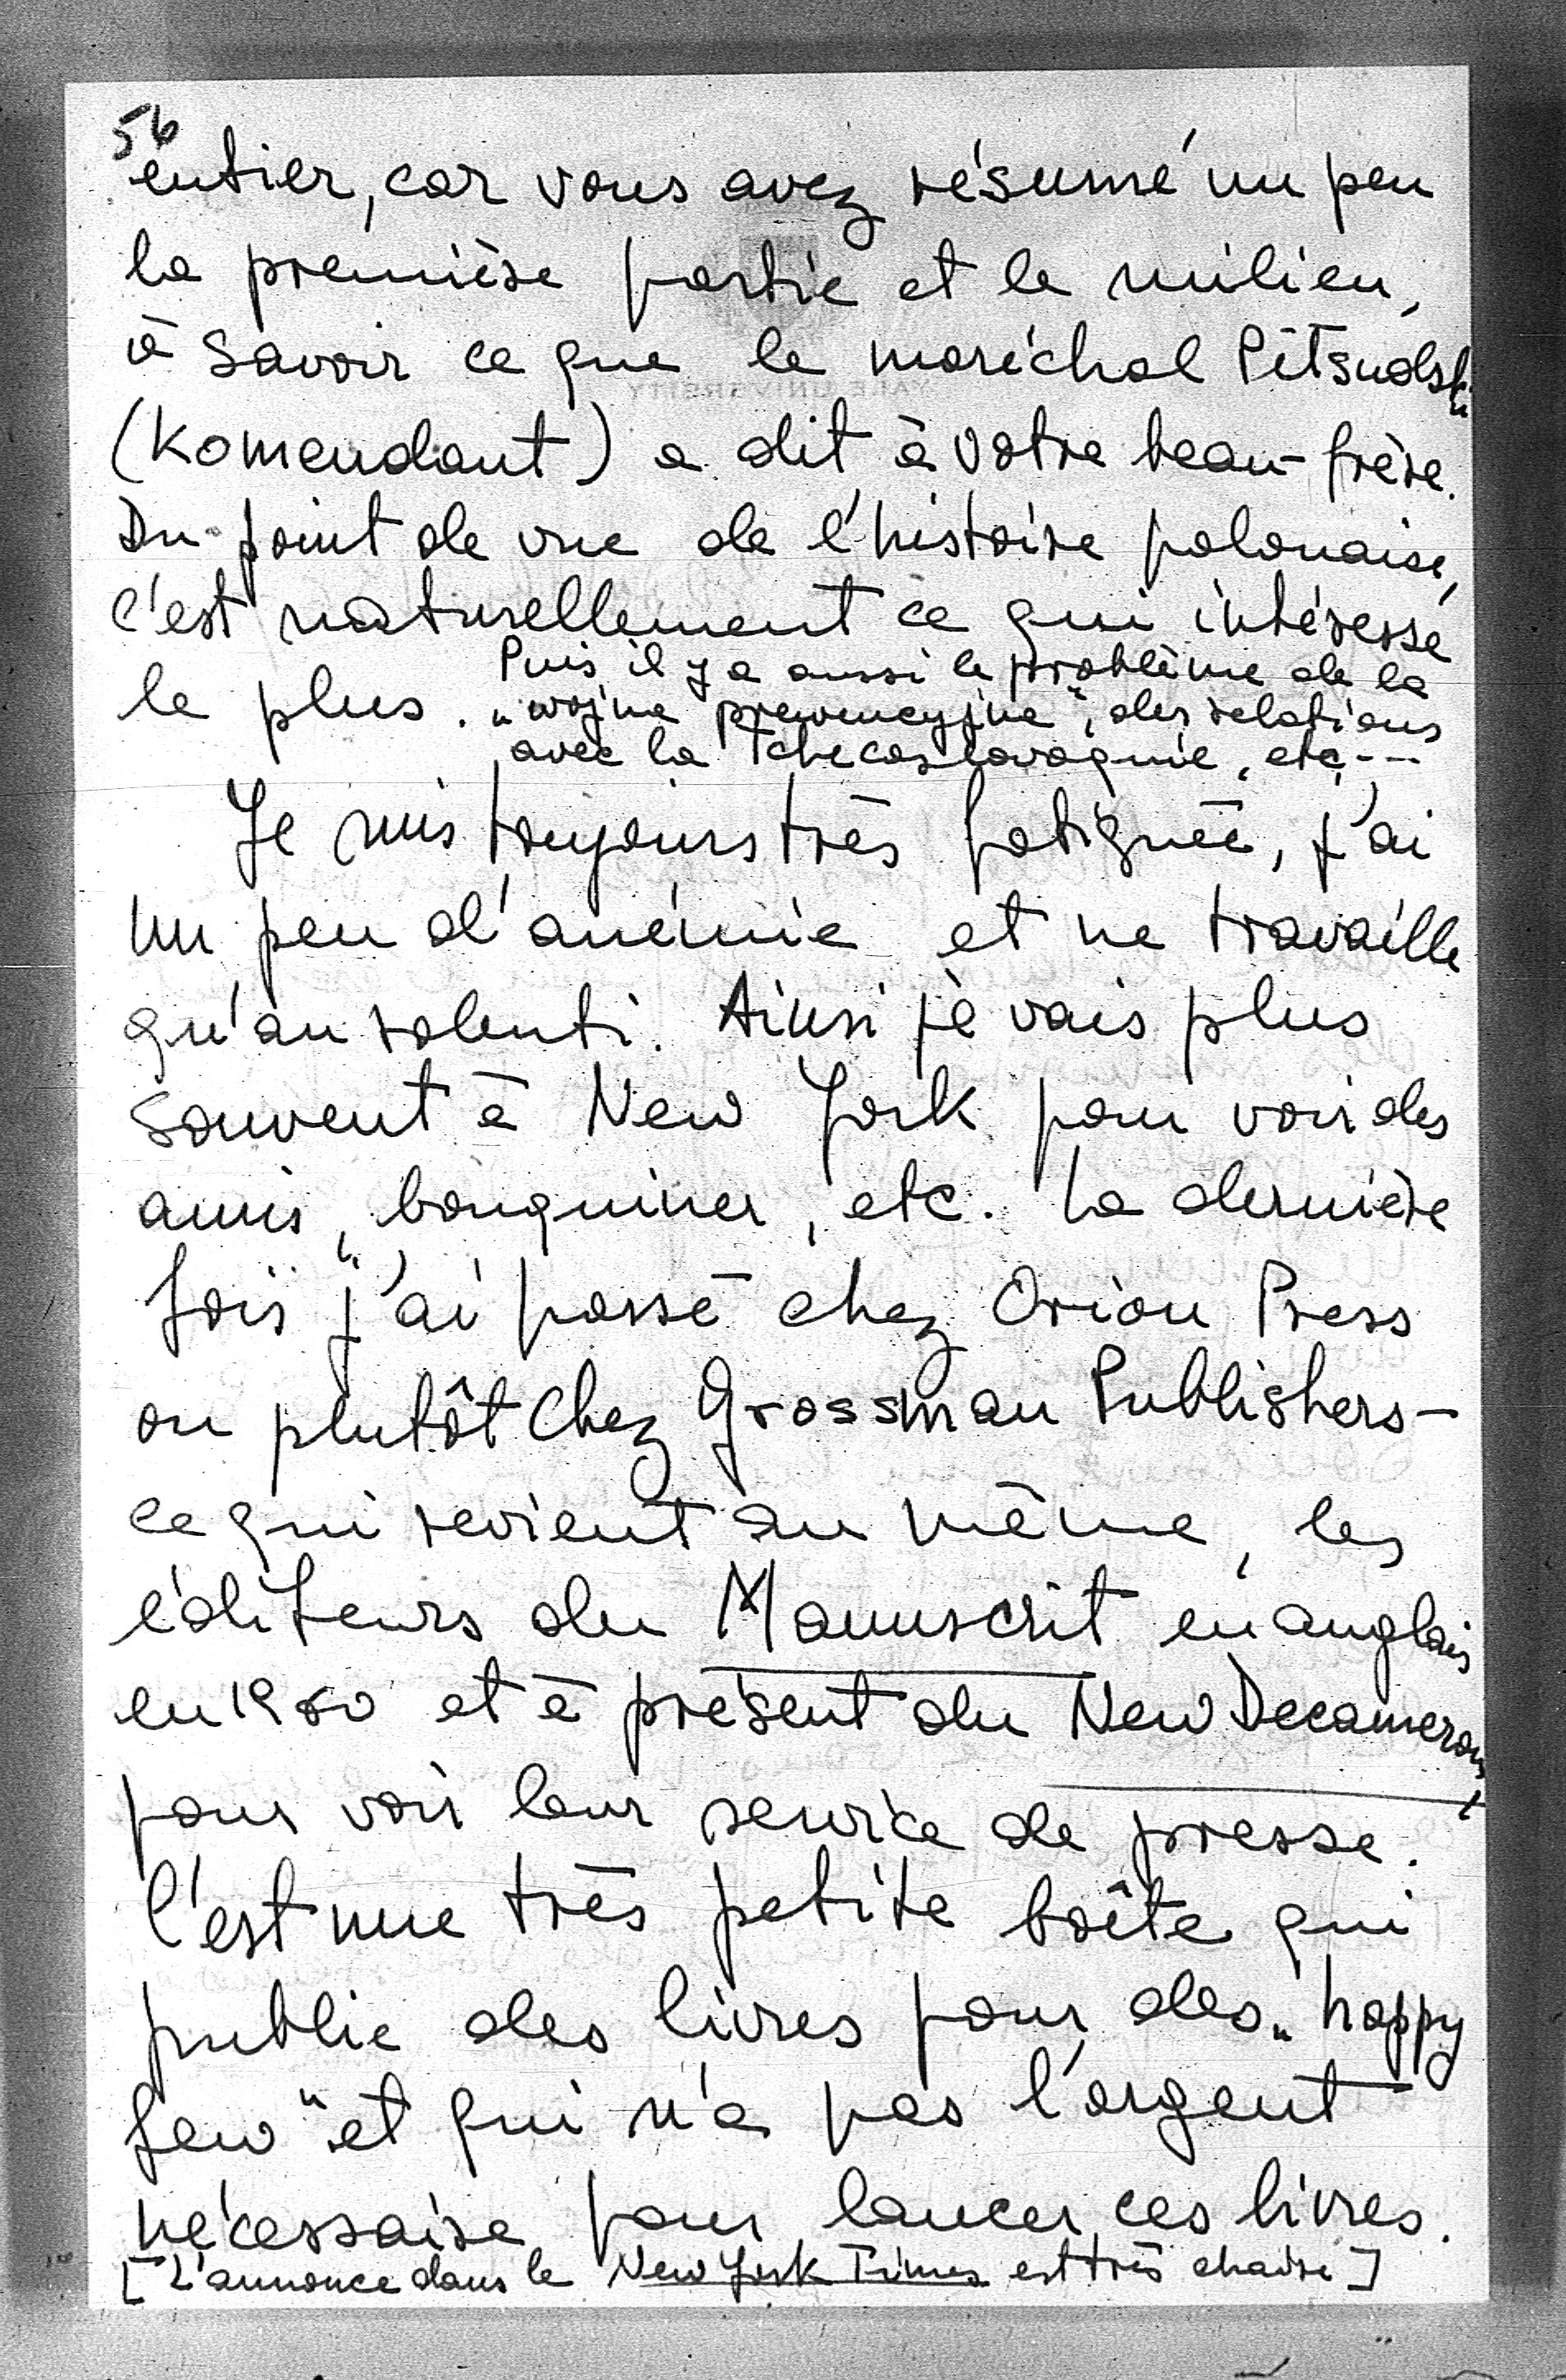 56
entier, car vous avez résumé un peu
la première partie et le milieu,
à savoir ce que le maréchal Piłsudski
(Komendant) a dit à votre beau-frère.
Du point de vue de l'histoire polonaise,
c'est naturellement ce qui intéresse
le plus. Puis il y a aussi le problème de la
„wojna prewencyjna", des relations
avec la Tchecoslovaquie, etc...
Je suis toujours très fatiguée, j'ai
un peu d'anémie et ne travaille
qu'au ralenti. Ainsi je vais plus
souvent à New York pour voir des
amis, bouquiner, etc. La dernière
fois j'ai passé chez Orion Press
ou plutôt chez Grossman Publishers –
ce qui revient au même, les
éditeurs du Manuscrit en anglais
en 1960 et à présent du New Decameron,
pour voir leur service de presse.
C'est une très petite boîte qui
publie des livres pour des „happy
few" et qui n'a pas l'argent
nécessaire pour lancer ces livres.
[L'annonce dans le New York Times est très chaire]